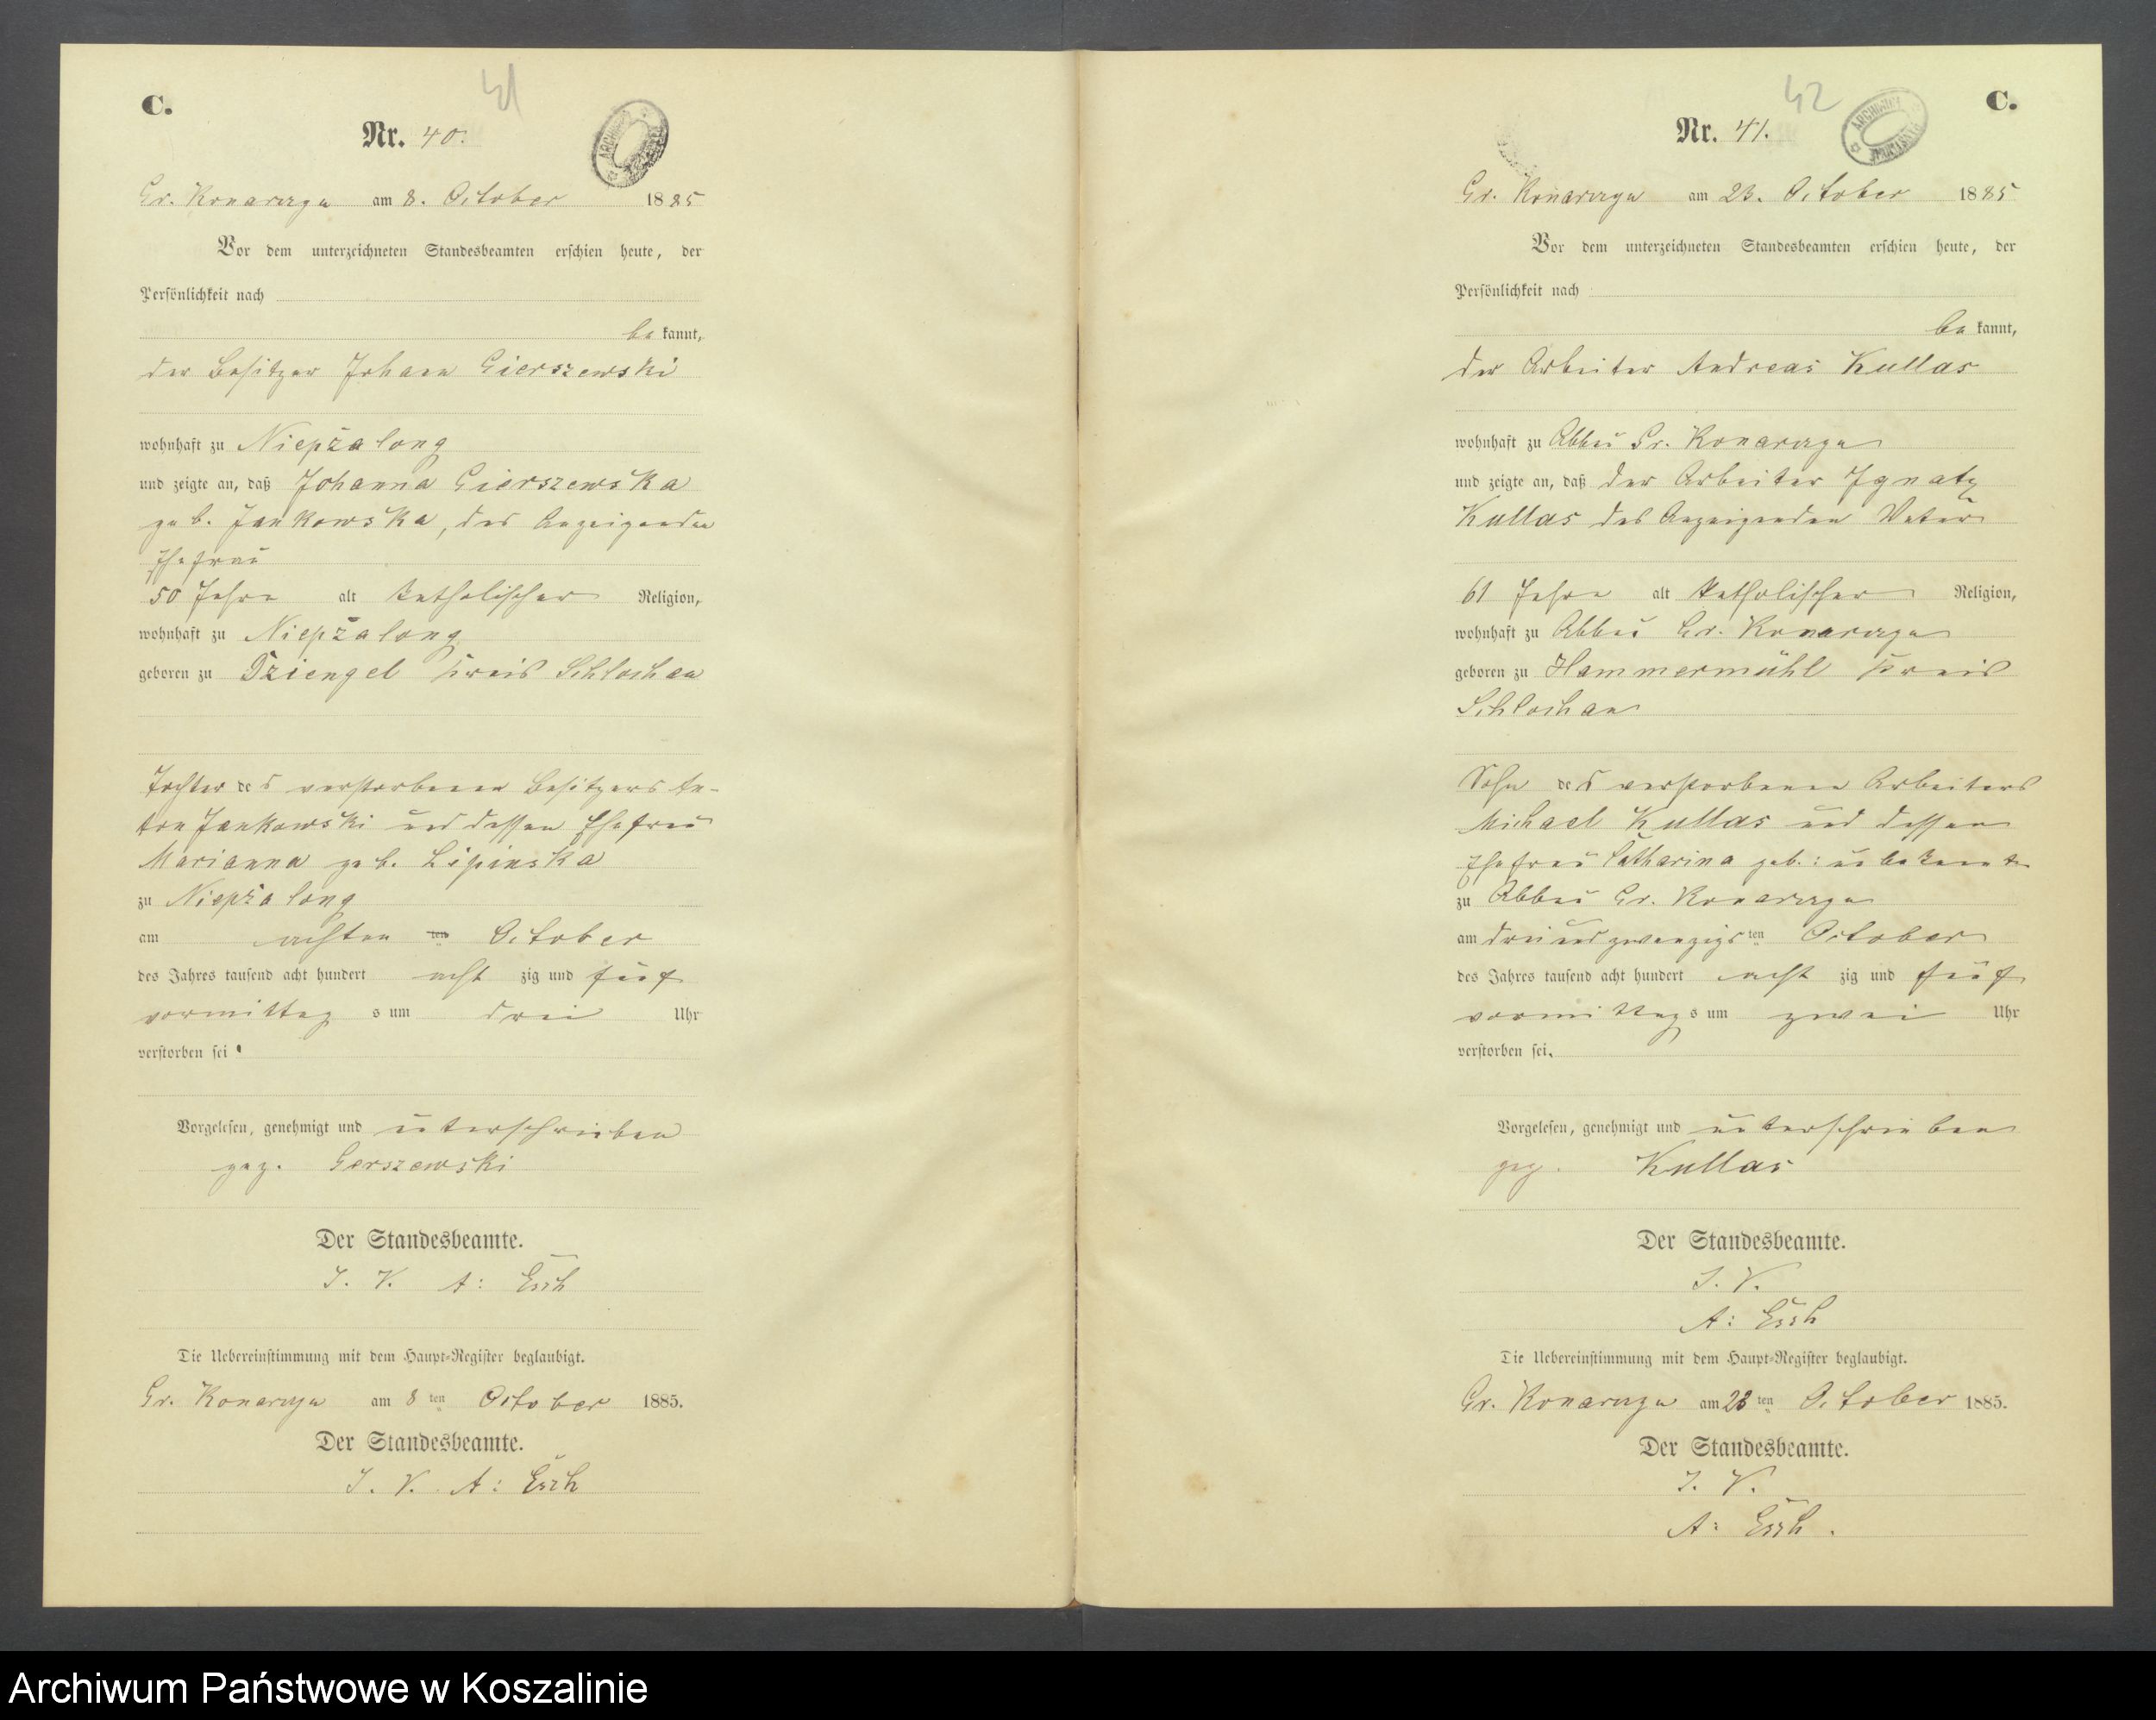 C.
41
Nr. 40.
Gr. Konarczyn am 8. October 1885
Vor dem unterzeichneten Standesbeamten erschien heute, der
Persönlichkeit nach
be kannt,
der Besitzer Johann Gierszewski
wohnhaft zu Niepszalong
und zeigte an, daß Johanna Gierszewska
geb. Jankowska, des Anzeigenden
Ehefrau
50 Jahre alt katholischer Religion,
wohnhaft zu Niepszalong
geboren zu Dziengel Kreis Schlochau
Tochter des verstorbenen Besitzers An-
ton Jankowski und dessen Ehefrau
Marianna geb. Lipinska
zu Niepszalong
am achten ten October
des Jahres tausend acht hundert acht zig und fünf
vormittag s um drei Uhr
verstorben sei.
Vorgelesen, genehmigt und unterschrieben
gez. Gerszewski
Der Standesbeamte.
I. V. A: Esch
Die Uebereinstimmung mit dem Haupt-Register beglaubigt.
Gr. Konarczyn am 8 ten October 1885.
Der Standesbeamte.
I. V. A: Esch
C.
42
ARCHIWUM
Nr. 41.
Gr. Konarczyn am 23. October 1885
Vor dem unterzeichneten Standesbeamten erschien heute, der
Persönlichkeit nach
be kannt,
der Arbeiter Andreas Kullas
wohnhaft zu Abbau Gr. Konarczyn
und zeigte an, daß der Arbeiter Ignatz
Kullas des Anzeigenden Vater
61 Jahre alt katholischer Religion,
wohnhaft zu Abbau Gr. Konarczyn
geboren zu Hammermühl Kreis
Schlochau
Sohn des verstorbenen Arbeiters
Michael Kullas und dessen
Ehefrau Catharina geb.: unbekannt
zu Abbau Gr. Konarczyn
am dreiundzwanzigsten October
des Jahres tausend acht hundert acht zig und fünf
vormittag s um zwei Uhr
verstorben sei.
Vorgelesen, genehmigt und unterschrieben
gez. Kullas
Der Standesbeamte.
I. V.
A: Esch
Die Uebereinstimmung mit dem Haupt-Register beglaubigt.
Gr. Konarczyn am 23 ten October 1885.
Der Standesbeamte.
I. V.
A: Esch.
Archiwum Państwowe w Koszalinie